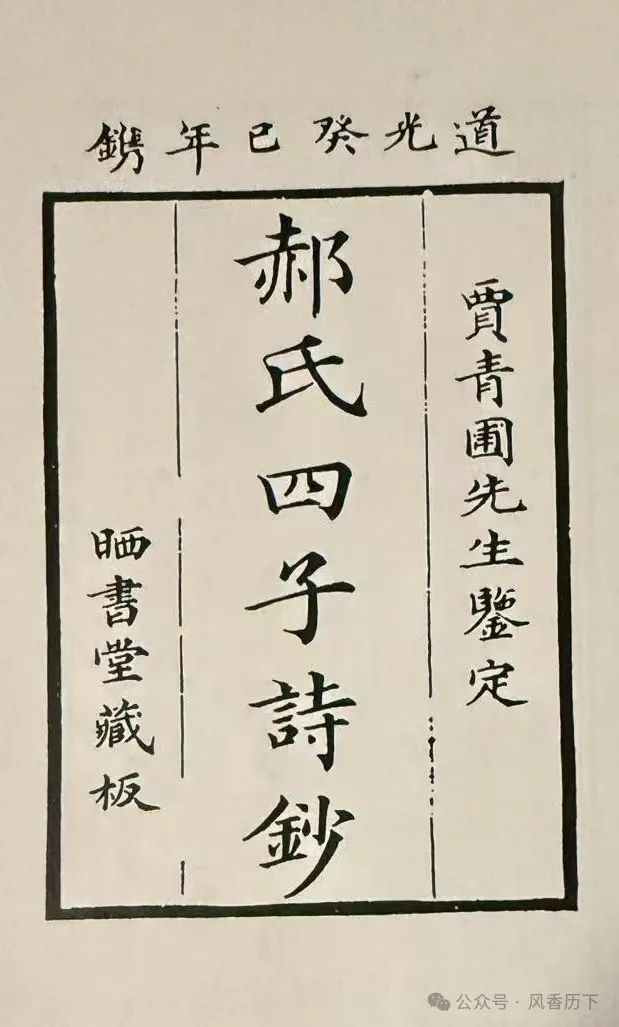 道光癸巳年鐫
賈青圃先生鑒定
郝氏四子詩鈔
晒書堂藏板
公众号·风香历下